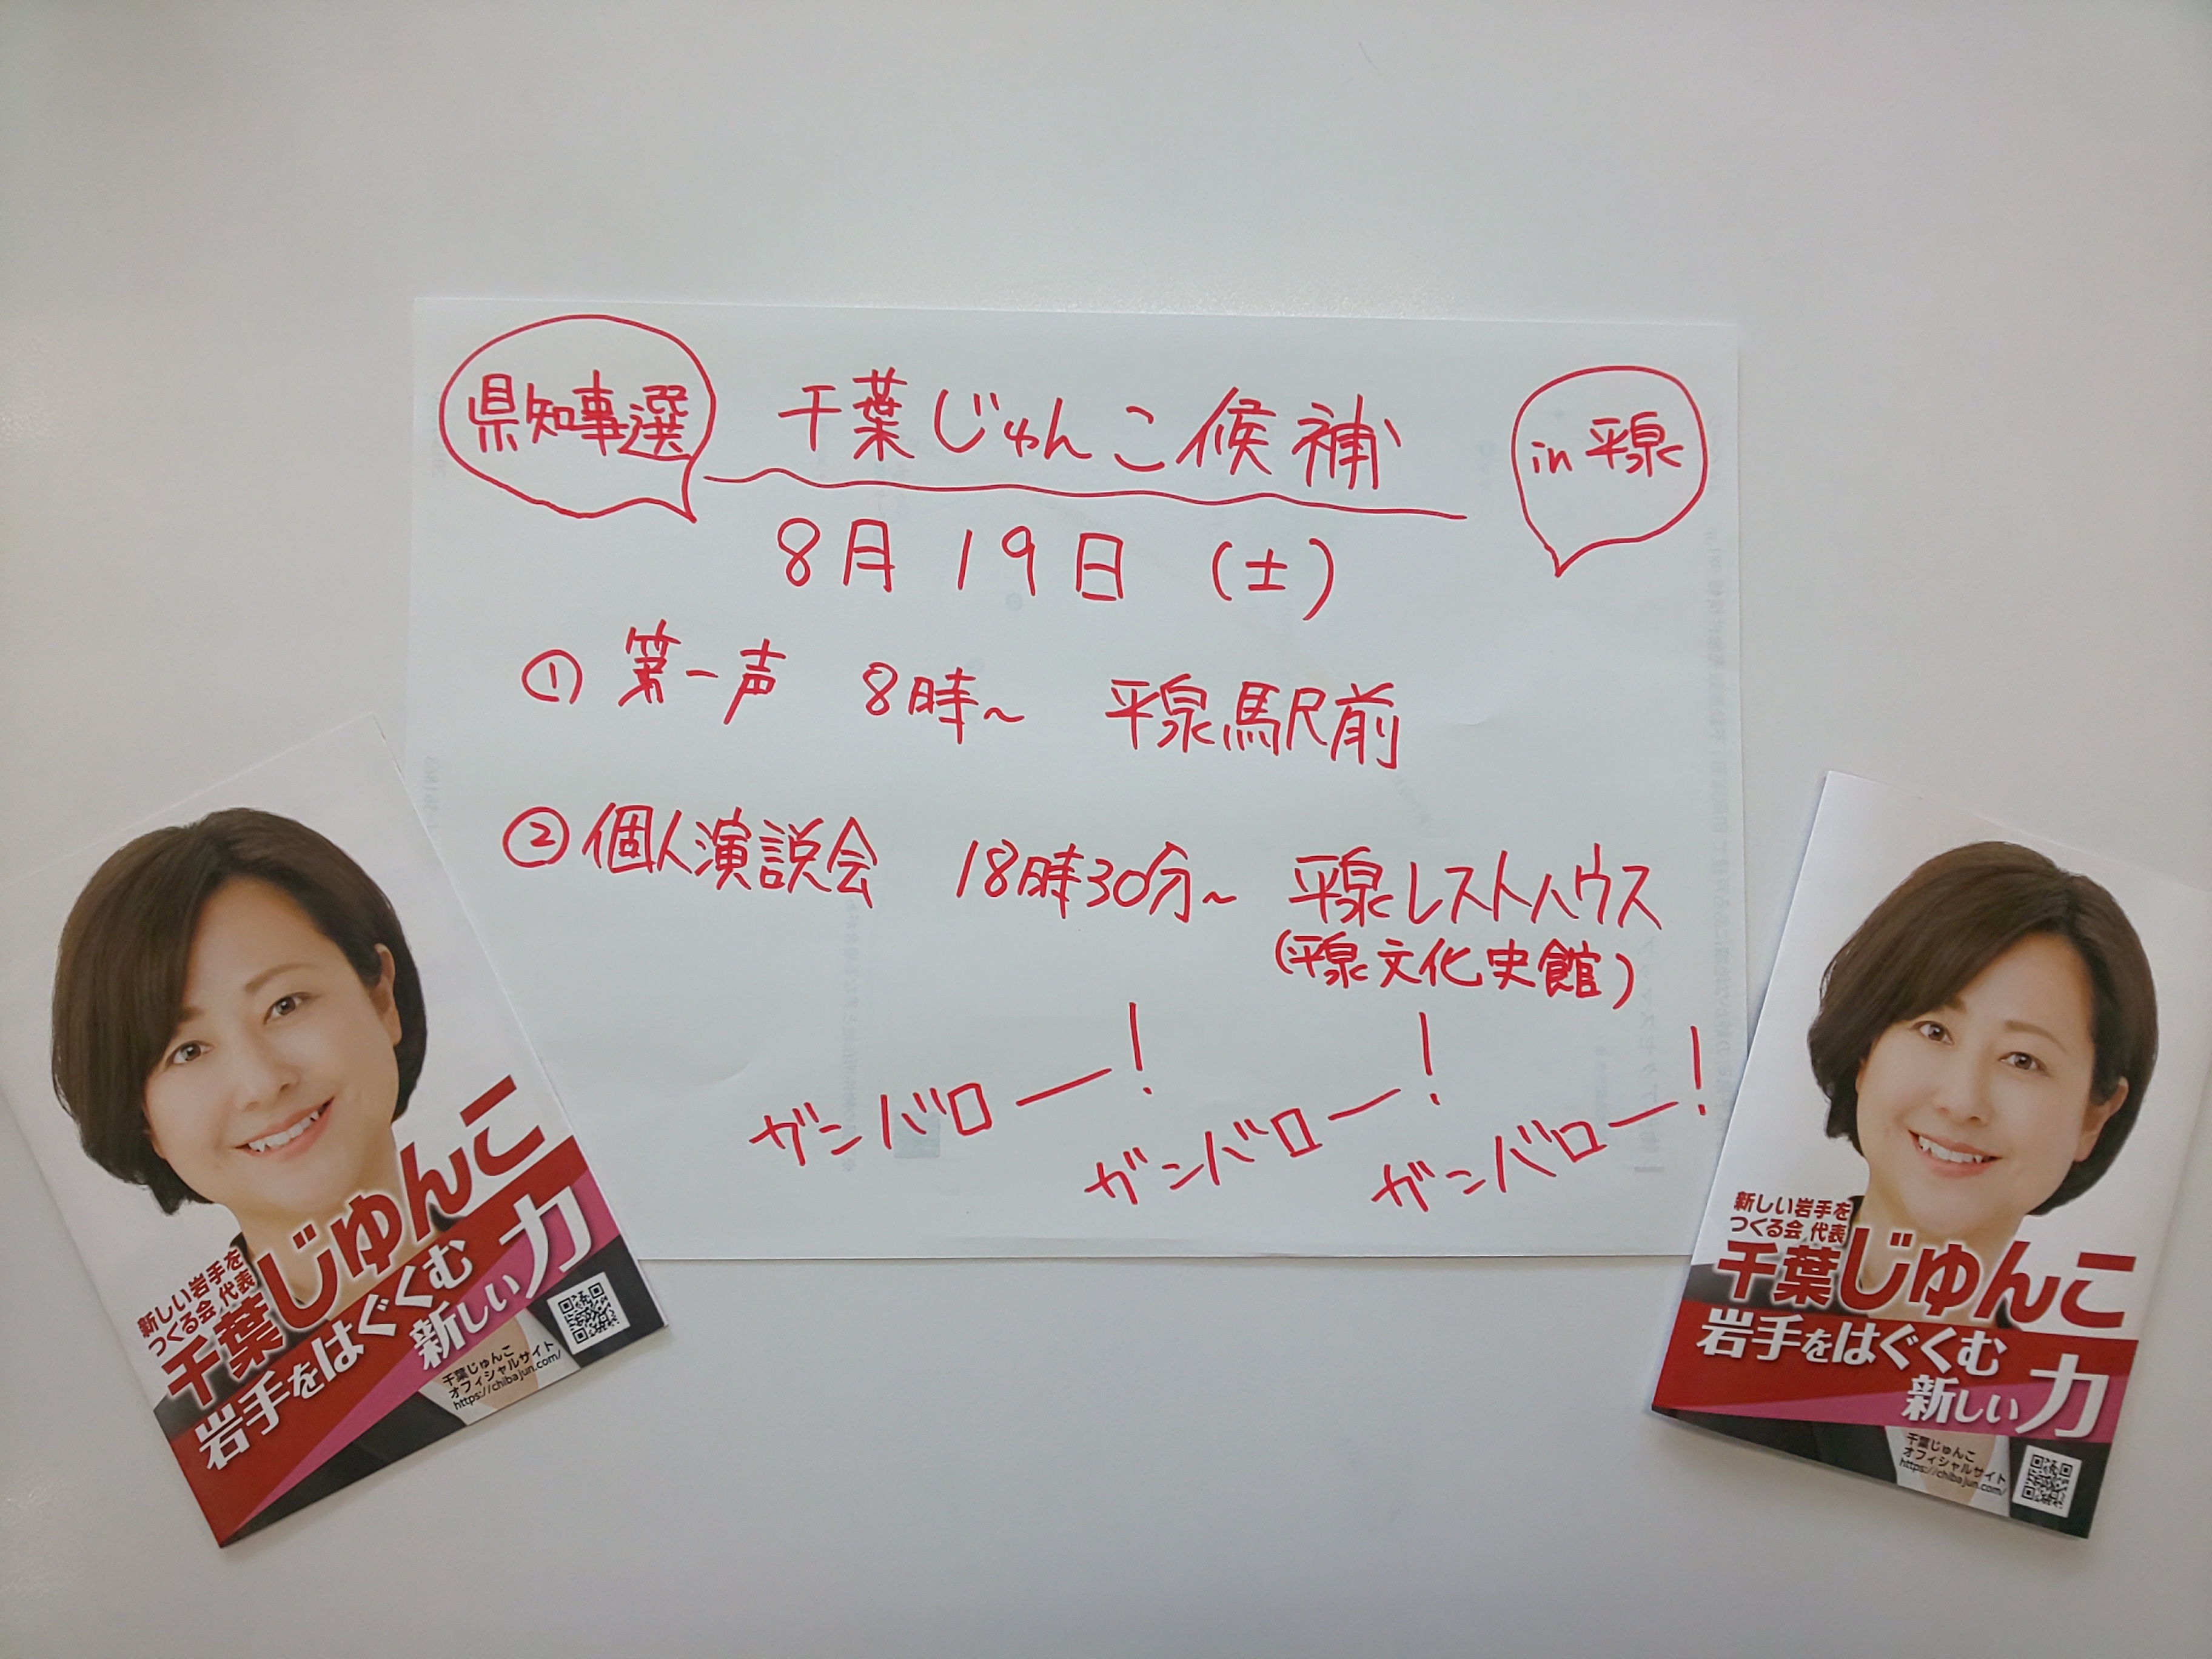 県知事選
千葉じゅんこ候補
in 平泉
8月19日(土)
① 第一声 8時~ 平泉駅前
② 個人演説会 18時30分~ 平泉レストハウス
(平泉文化史館)
ガンバロー!
ガンバロー!
ガンバロー!
新しい岩手を
つくる会 代表
千葉じゅんこ
岩手をはぐくむ
新しい力
千葉じゅんこ
オフィシャルサイト
https://chibajun.com/
新しい岩手を
つくる会 代表
千葉じゅんこ
岩手をはぐくむ
新しい力
千葉じゅんこ
オフィシャルサイト
https://chibajun.com/